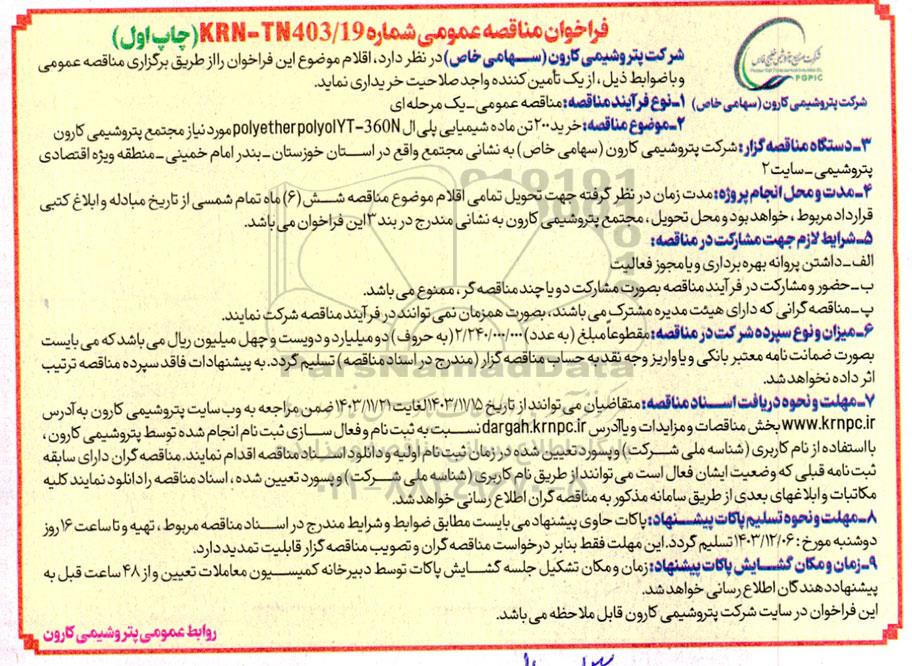 فراخوان مناقصه عمومی شماره KRN-TN403/19 (چاپ اول)
شرکت صنایع پتروشیمی خلیج فارس
PGPIC
شرکت پتروشیمی کارون (سهامی خاص)
شرکت پتروشیمی کارون (سهامی خاص) در نظر دارد، اقلام موضوع این فراخوان را از طریق برگزاری مناقصه عمومی
و با ضوابط ذیل، از یک تأمین کننده واجد صلاحیت خریداری نماید.
۱-نوع فرآیند مناقصه: مناقصه عمومی-یک مرحله ای
۲-موضوع مناقصه: خرید ۲۰۰ تن ماده شیمیایی پلی ال polyether polyol YT-360N مورد نیاز مجتمع پتروشیمی کارون
۳-دستگاه مناقصه گزار: شرکت پتروشیمی کارون (سهامی خاص) به نشانی مجتمع واقع در استان خوزستان-بندر امام خمینی-منطقه ویژه اقتصادی
پتروشیمی-سایت ۲
۴-مدت و محل انجام پروژه: مدت زمان در نظر گرفته جهت تحویل تمامی اقلام موضوع مناقصه شش (۶) ماه تمام شمسی از تاریخ مبادله و ابلاغ کتبی
قرارداد مربوط، خواهد بود و محل تحویل، مجتمع پتروشیمی کارون به نشانی مندرج در بند ۳ این فراخوان می باشد.
۵-شرایط لازم جهت مشارکت در مناقصه:
الف-داشتن پروانه بهره برداری و یا مجوز فعالیت
ب-حضور و مشارکت در فرآیند مناقصه بصورت مشارکت دو یا چند مناقصه گر، ممنوع می باشد.
پ-مناقصه گرانی که دارای هیئت مدیره مشترک می باشند، بصورت همزمان نمی توانند در فرآیند مناقصه شرکت نمایند.
۶-میزان و نوع سپرده شرکت در مناقصه: مقطوعا مبلغ (به عدد) ۲/۲۴۰/۰۰۰/۰۰۰ (به حروف) دو میلیارد و دویست و چهل میلیون ریال می باشد که می بایست
بصورت ضمانت نامه معتبر بانکی و یا واریز وجه نقد به حساب مناقصه گزار (مندرج در اسناد مناقصه) تسلیم گردد. به پیشنهادات فاقد سپرده مناقصه ترتیب
اثر داده نخواهد شد.
۷-مهلت و نحوه دریافت اسناد مناقصه: متقاضیان می توانند از تاریخ ۱۴۰۳/۱۱/۱۵ لغایت ۱۴۰۳/۱۱/۲۱ ضمن مراجعه به وب سایت پتروشیمی کارون به آدرس
www.krnpc.ir بخش مناقصات و مزایدات و یا آدرس dargah.krnpc.ir نسبت به ثبت نام و فعال سازی ثبت نام انجام شده توسط پتروشیمی کارون،
با استفاده از نام کاربری (شناسه ملی شرکت) و پسورد تعیین شده در زمان ثبت نام اولیه و دانلود اسناد مناقصه اقدام نمایند. مناقصه گران دارای سابقه
ثبت نامه قبلی که وضعیت ایشان فعال است می توانند از طریق نام کاربری (شناسه ملی شرکت) و پسورد تعیین شده، اسناد مناقصه را دانلود نمایند کلیه
مکاتبات و ابلاغهای بعدی از طریق سامانه مذکور به مناقصه گران اطلاع رسانی خواهد شد.
۸-مهلت و نحوه تسلیم پاکات پیشنهاد: پاکات حاوی پیشنهاد می بایست مطابق ضوابط و شرایط مندرج در اسناد مناقصه مربوط، تهیه و تا ساعت ۱۶ روز
دوشنبه مورخ: ۱۴۰۳/۱۲/۰۶ تسلیم گردد. این مهلت فقط بنابر درخواست مناقصه گران و تصویب مناقصه گزار قابلیت تمدید دارد.
۹-زمان و مکان گشایش پاکات پیشنهاد: زمان و مکان تشکیل جلسه گشایش پاکات توسط دبیرخانه کمیسیون معاملات تعیین و از ۴۸ ساعت قبل به
پیشنهاددهندگان اطلاع رسانی خواهد شد.
این فراخوان در سایت شرکت پتروشیمی کارون قابل ملاحظه می باشد.
روابط عمومی پتروشیمی کارون
ParsNamadData